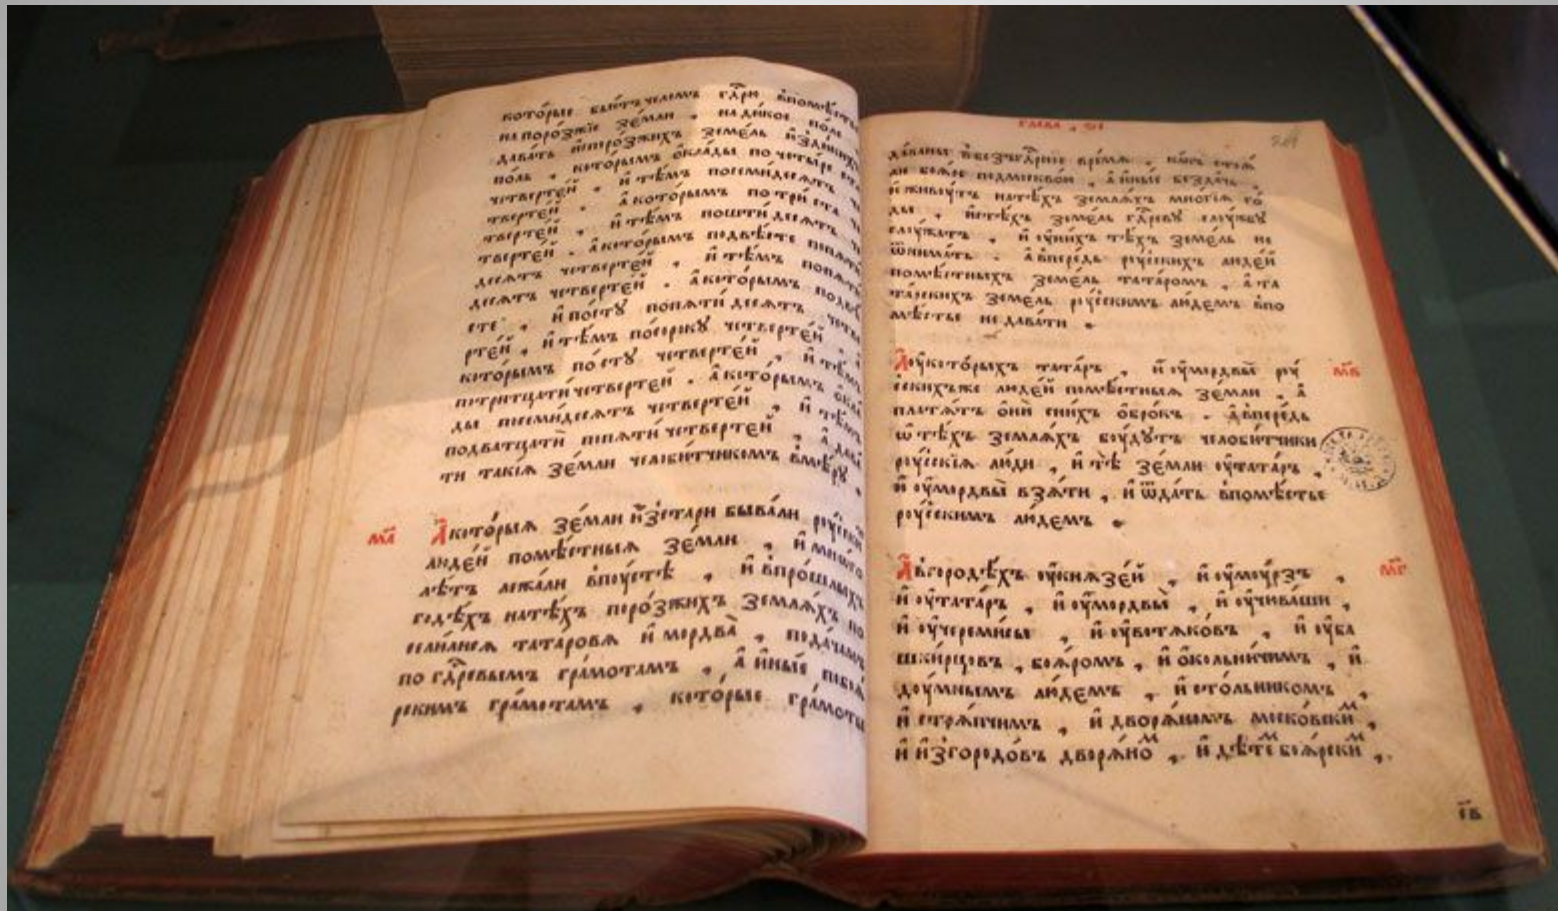 которые бью́тъ челомъ гдⷭ҇рю впомѣ́стье
на поро́зжїе зе́мли , на ди́кое по́ле
дава́ть и҆спорожжихъ земе́ль и҆здикихъ
по́ль , которымъ ѻ҆кла́ды по четы́ре ста
четверте́й , и҆ тѣ́мъ посемидесятъ че
твертей . а҆ которымъ по три́ ста че
твертей , и҆ тѣ́мъ пошти́десятъ че
твертей . а҆ которымъ подвѣ́сте попяти
десятъ четверте́й , и҆ тѣ́мъ попяти
десятъ четверте́й . а҆ которымъ
сте , и҆ по́сту попяти́ десятъ четве
рте́й , и҆ тѣ́мъ посороку четверте́й . а҆
которымъ по́ сту четверте́й , и҆ тѣ́мъ
потритцати четверте́й . а҆ кото́рымъ ѻ҆кла
ды посемидесятъ четверте́й , и҆ тѣ́мъ
подватцати попяти́ четверте́й , а҆ дава
ти такі́я зе́мли челоби́тчикомъ вмѣ́ру .
ма҃ А҆ кото́рыя зе́мли и҆зстари быва́ли рꙋ́сских
люде́й помѣ́стныя зе́мли , и҆ мно́го
лѣ́тъ лежа́ли впꙋ́стѣ , и҆ впро́шлыхъ
годѣ́хъ натѣ́хъ поро́зжихъ земля́хъ по
сели́лися татаровя и҆ мордва̀ , пода́чамъ
по гдⷭ҇ревымъ гра́мотамъ , а҆ и҆ны́е побоя́
рскимъ гра́мотамъ , кото́рые гра́моты
глава , ѕ҃і
да́ваны вбезъгдⷭ҇рное вре́мя , какъ стоя́
ли бояре подмосквою , а҆ и҆ны́е бездачь ,
и҆ живꙋ́тъ натѣ́хъ земля́хъ многія го́
ды , и҆стѣ́хъ земе́ль гдⷭ҇ревꙋ слꙋжбꙋ
слꙋ́жатъ , и҆ ᲂу҆ни́хъ тѣ́хъ земе́ль не
ѿнима́ть . а҆ впере́дь рꙋ́сскихъ люде́й
помѣ́стныхъ земе́ль татаромъ , а҆ та
та́рскихъ земе́ль рꙋ́сскимъ лю́демъ впо
мѣ́стье недава́ти .
А҆ ᲂу҆кото́рыхъ тата́ръ , и҆ ᲂу҆мордвы̀ рꙋ́ мв҃
сскихъже люде́й помѣ́стныя зе́мли , а҆
платя́тъ ѻ҆нѝ сни́хъ ѻ҆бро́къ . а҆ впере́дь
ѡ҆ тѣ́хъ земля́хъ бꙋ́дꙋтъ челоби́тчики
рꙋ́сскія лю́ди , и҆ тѣ̀ зе́мли ᲂу҆тата́ръ ,
и҆ ᲂу҆мордвы̀ взя́ти , и҆ ѿда́ть впомѣ́стье
рꙋ́сскимъ лю́демъ .
А҆ вгородѣ́хъ ᲂу҆князе́й , и҆ ᲂу҆мꙋ́рзъ , мг҃
и҆ ᲂу҆тата́ръ , и҆ ᲂу҆мордвы̀ , и҆ ᲂу҆чюва́ши ,
и҆ ᲂу҆череми́сы , и҆ ᲂу҆вотяко́въ , и҆ ᲂу҆ба
шки́рцовъ , боя́ромъ , и҆ ѻ҆кольни́чимъ , и҆
дꙋ́мнымъ лю́демъ , и҆ сто́льникомъ ,
и҆ стря́пчимъ , и҆ дворя́номъ моско́вскиⷨ ,
и҆ и҆згородо́въ дворя́ноⷨ , и҆ дѣ́теⷨ боя́рскиⷨ ,